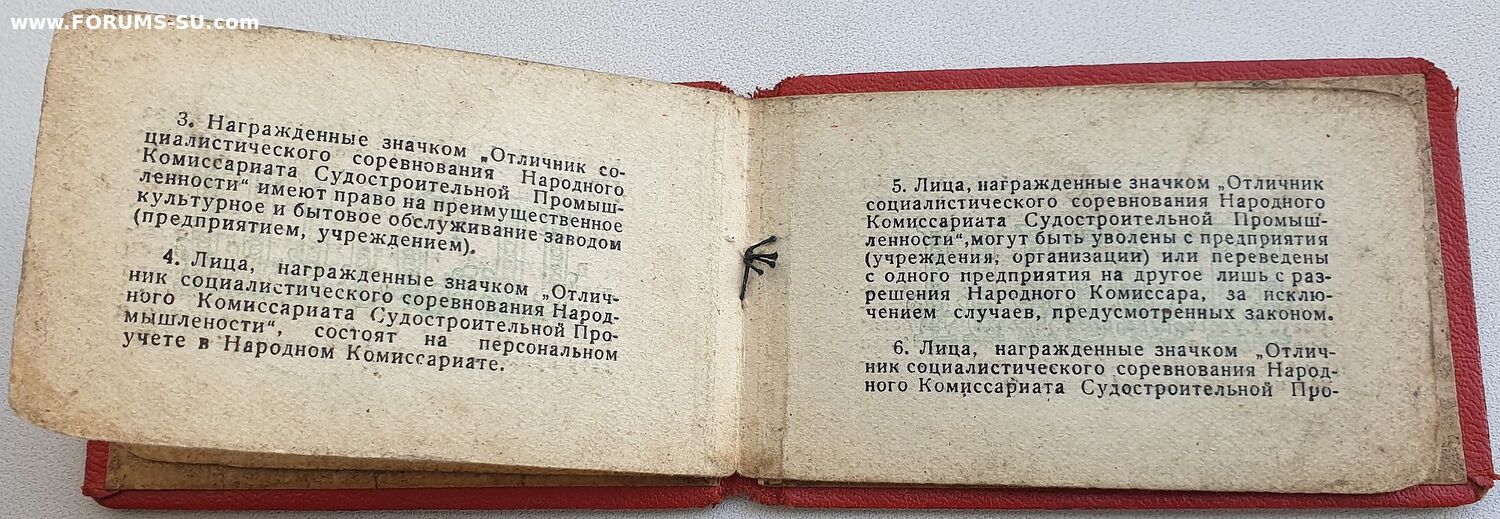 www.FORUMS-SU.com
3. Награжденные значком „Отличник со-
циалистического соревнования Народного
Комиссариата Судостроительной Промыш-
ленности“ имеют право на преимущественное
культурное и бытовое обслуживание заводом
(предприятием, учреждением).
4. Лица, награжденные значком „Отлич-
ник социалистического соревнования Народ-
ного Комиссариата Судостроительной Про-
мышлености“, состоят на персональном
учете в Народном Комиссариате.
5. Лица, награжденные значком „Отличник
социалистического соревнования Народного
Комиссариата Судостроительной Промыш-
ленности“,могут быть уволены с предприятия
(учреждения, организации) или переведены
с одного предприятия на другое лишь с раз-
решения Народного Комиссара, за исклю-
чением случаев, предусмотренных законом.
6. Лица, награжденные значком „Отлич-
ник социалистического соревнования Народ-
ного Комиссариата Судостроительной Про-